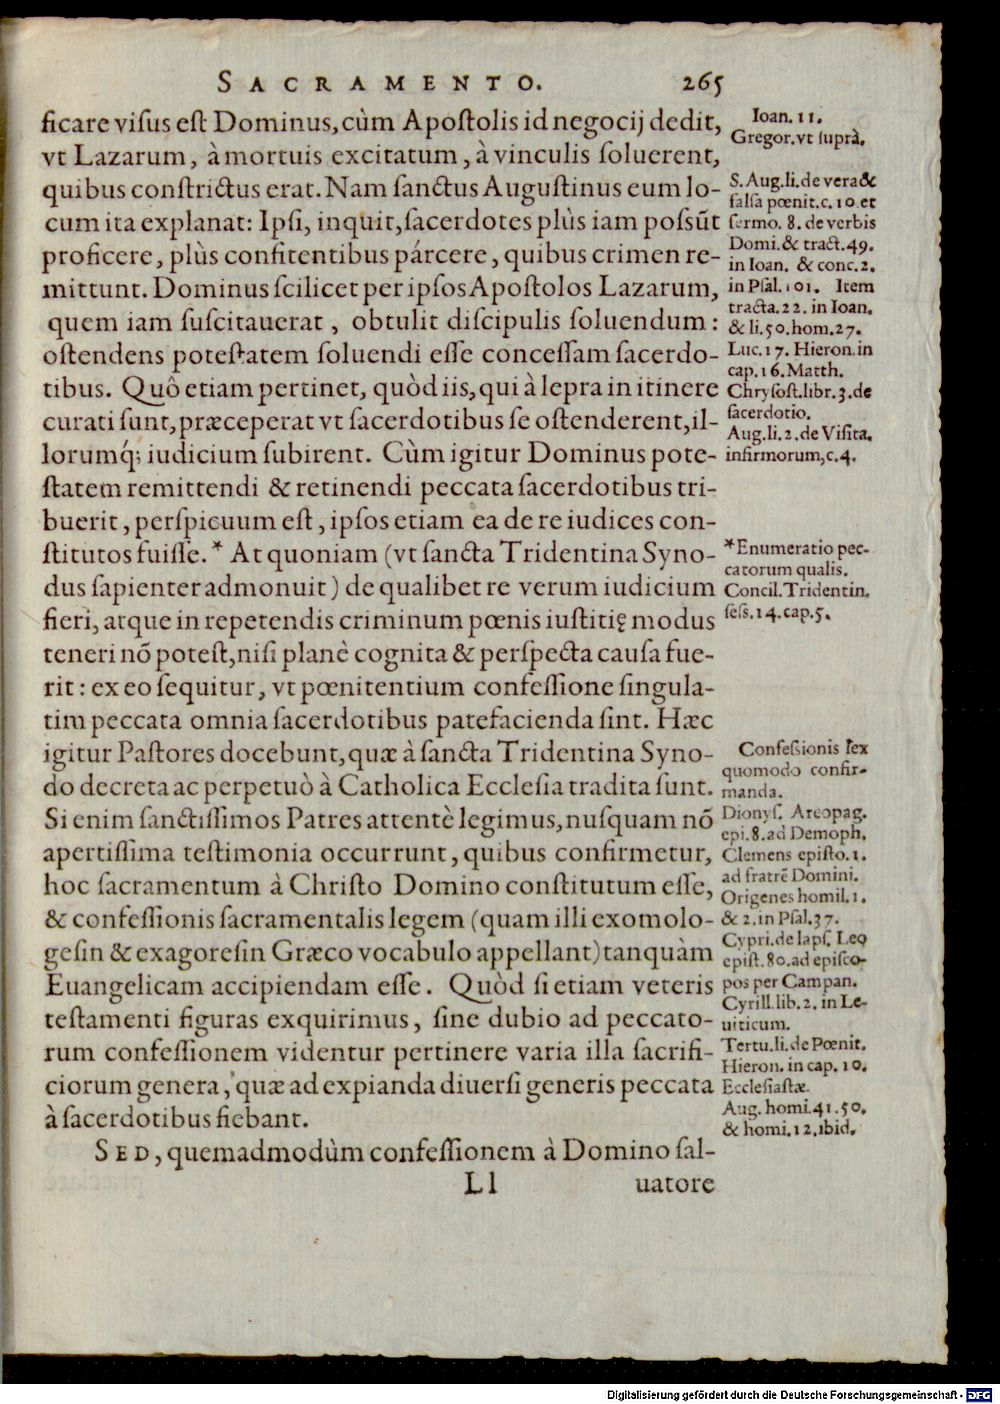 SACRAMENTO. 265
ficare viſus eſt Dominus, cùm Apoſtolis id negocij dedit,
vt Lazarum, à mortuis excitatum, à vinculis ſoluerent,
quibus conſtrictus erat. Nam ſanctus Auguſtinus eum lo-
cum ita explanat: Ipſi, inquit, ſacerdotes plùs iam poſsūt
proficere, plùs confitentibus párcere, quibus crimen re-
mittunt. Dominus ſcilicet per ipſos Apoſtolos Lazarum,
quem iam ſuſcitauerat, obtulit diſcipulis ſoluendum:
oſtendens poteſtatem ſoluendi eſſe conceſſam ſacerdo-
tibus. Quô etiam pertinet, quòd iis, qui à lepra in itinere
curati ſunt, præceperat vt ſacerdotibus ſe oſtenderent, il-
lorumq́; iudicium ſubirent. Cùm igitur Dominus pote-
ſtatem remittendi & retinendi peccata ſacerdotibus tri-
buerit, perſpicuum eſt, ipſos etiam ea de re iudices con-
ſtitutos fuiſſe.* At quoniam (vt ſancta Tridentina Syno-
dus ſapienter admonuit) de qualibet re verum iudicium
fieri, atque in repetendis criminum pœnis iuſtitię modus
teneri nō poteſt, niſi planè cognita & perſpecta cauſa fue-
rit: ex eo ſequitur, vt pœnitentium confeſſione ſingula-
tim peccata omnia ſacerdotibus patefacienda ſint. Hæc
igitur Paſtores docebunt, quæ à ſancta Tridentina Syno-
do decreta ac perpetuò à Catholica Eccleſia tradita ſunt.
Si enim ſanctiſſimos Patres attentè legimus, nuſquam nō
apertiſſima teſtimonia occurrunt, quibus confirmetur,
hoc ſacramentum à Chriſto Domino conſtitutum eſſe,
& confeſſionis ſacramentalis legem (quam illi exomolo-
geſin & exagoreſin Græco vocabulo appellant) tanquàm
Euangelicam accipiendam eſſe. Quòd ſi etiam veteris
teſtamenti figuras exquirimus, ſine dubio ad peccato-
rum confeſſionem videntur pertinere varia illa ſacrifi-
ciorum genera, quæ ad expianda diuerſi generis peccata
à ſacerdotibus fiebant.
SED, quemadmodùm confeſſionem à Domino ſal-
Ll uatore
Ioan. 11.
Gregor. vt ſuprà.
S. Aug. li. de vera &
falſa pœnit. c. 10. et
ſermo. 8. de verbis
Domi. & tract. 49.
in Ioan. & conc. 2.
in Pſal. 101. Item
tracta. 22. in Ioan.
& li. 50. hom. 27.
Luc. 17. Hieron. in
cap. 16. Matth.
Chryſoſt. libr. 3. de
ſacerdotio.
Aug. li. 2. de Viſita.
infirmorum, c. 4.
*Enumeratio pec-
catorum qualis.
Concil. Tridentin.
ſeſs. 14. cap. 5.
Confeſsionis lex
quomodo confir-
manda.
Dionyſ. Areopag.
epi. 8. ad Demoph.
Clemens epiſto. 1.
ad fratrē Domini.
Origenes homil. 1.
& 2. in Pſal. 37.
Cypri. de lapſ. Leo
epiſt. 80. ad epiſco-
pos per Campan.
Cyrill. lib. 2. in Le-
uiticum.
Tertu. li. de Pœnit.
Hieron. in cap. 10.
Eccleſiaſtæ.
Aug. homi. 41. 50.
& homi. 12. ibid.
Digitalisierung gefördert durch die Deutsche Forschungsgemeinschaft - DFG